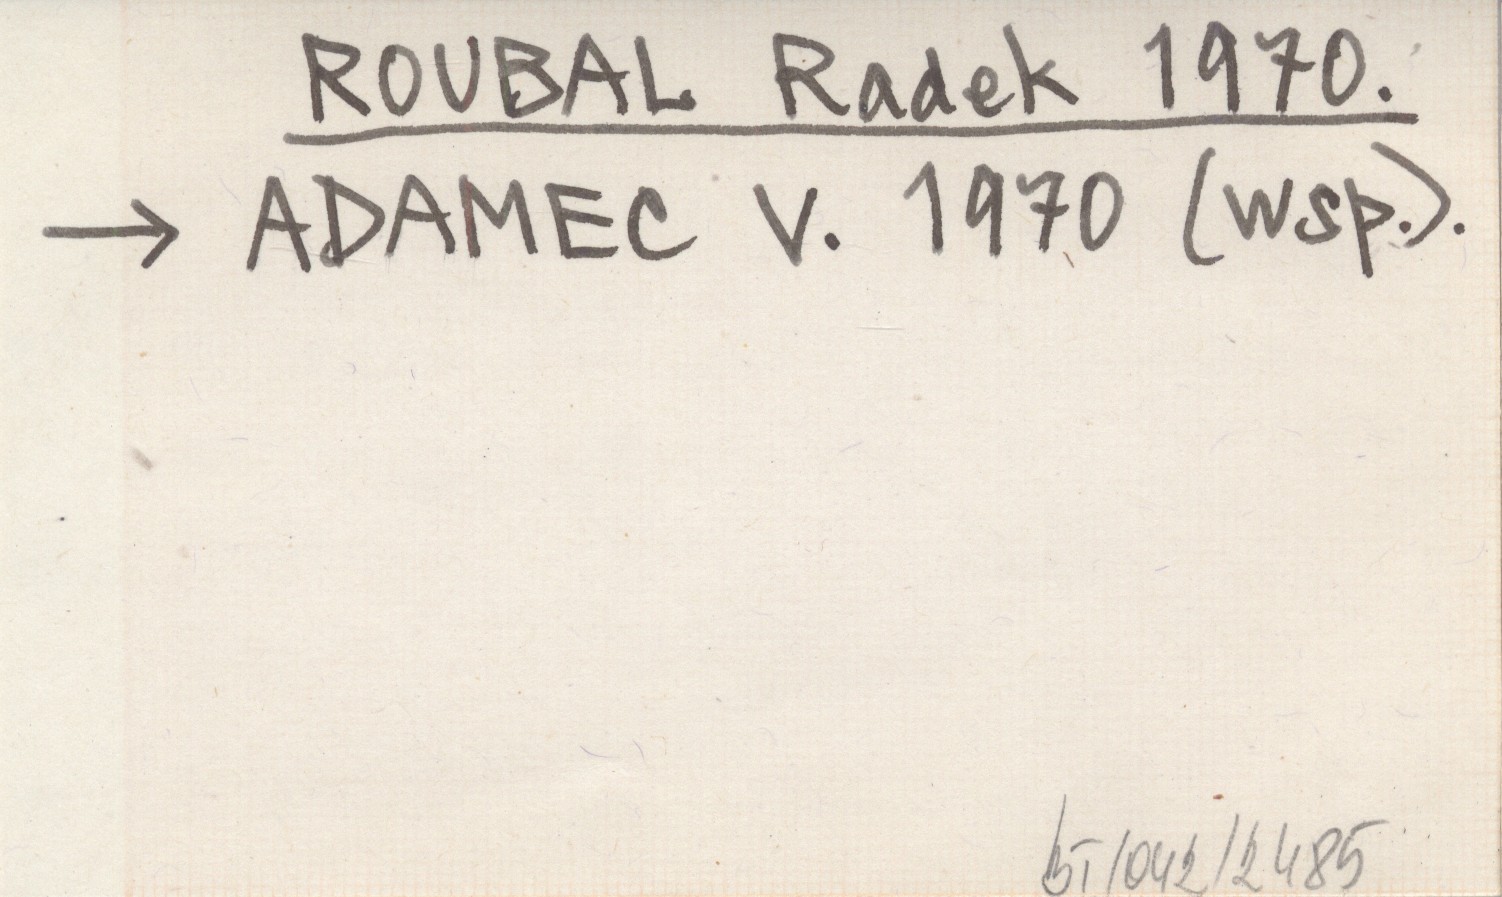 ROUBAL Radek 1970.
→ ADAMEC V. 1970 (wsp.).
BT/042/2485